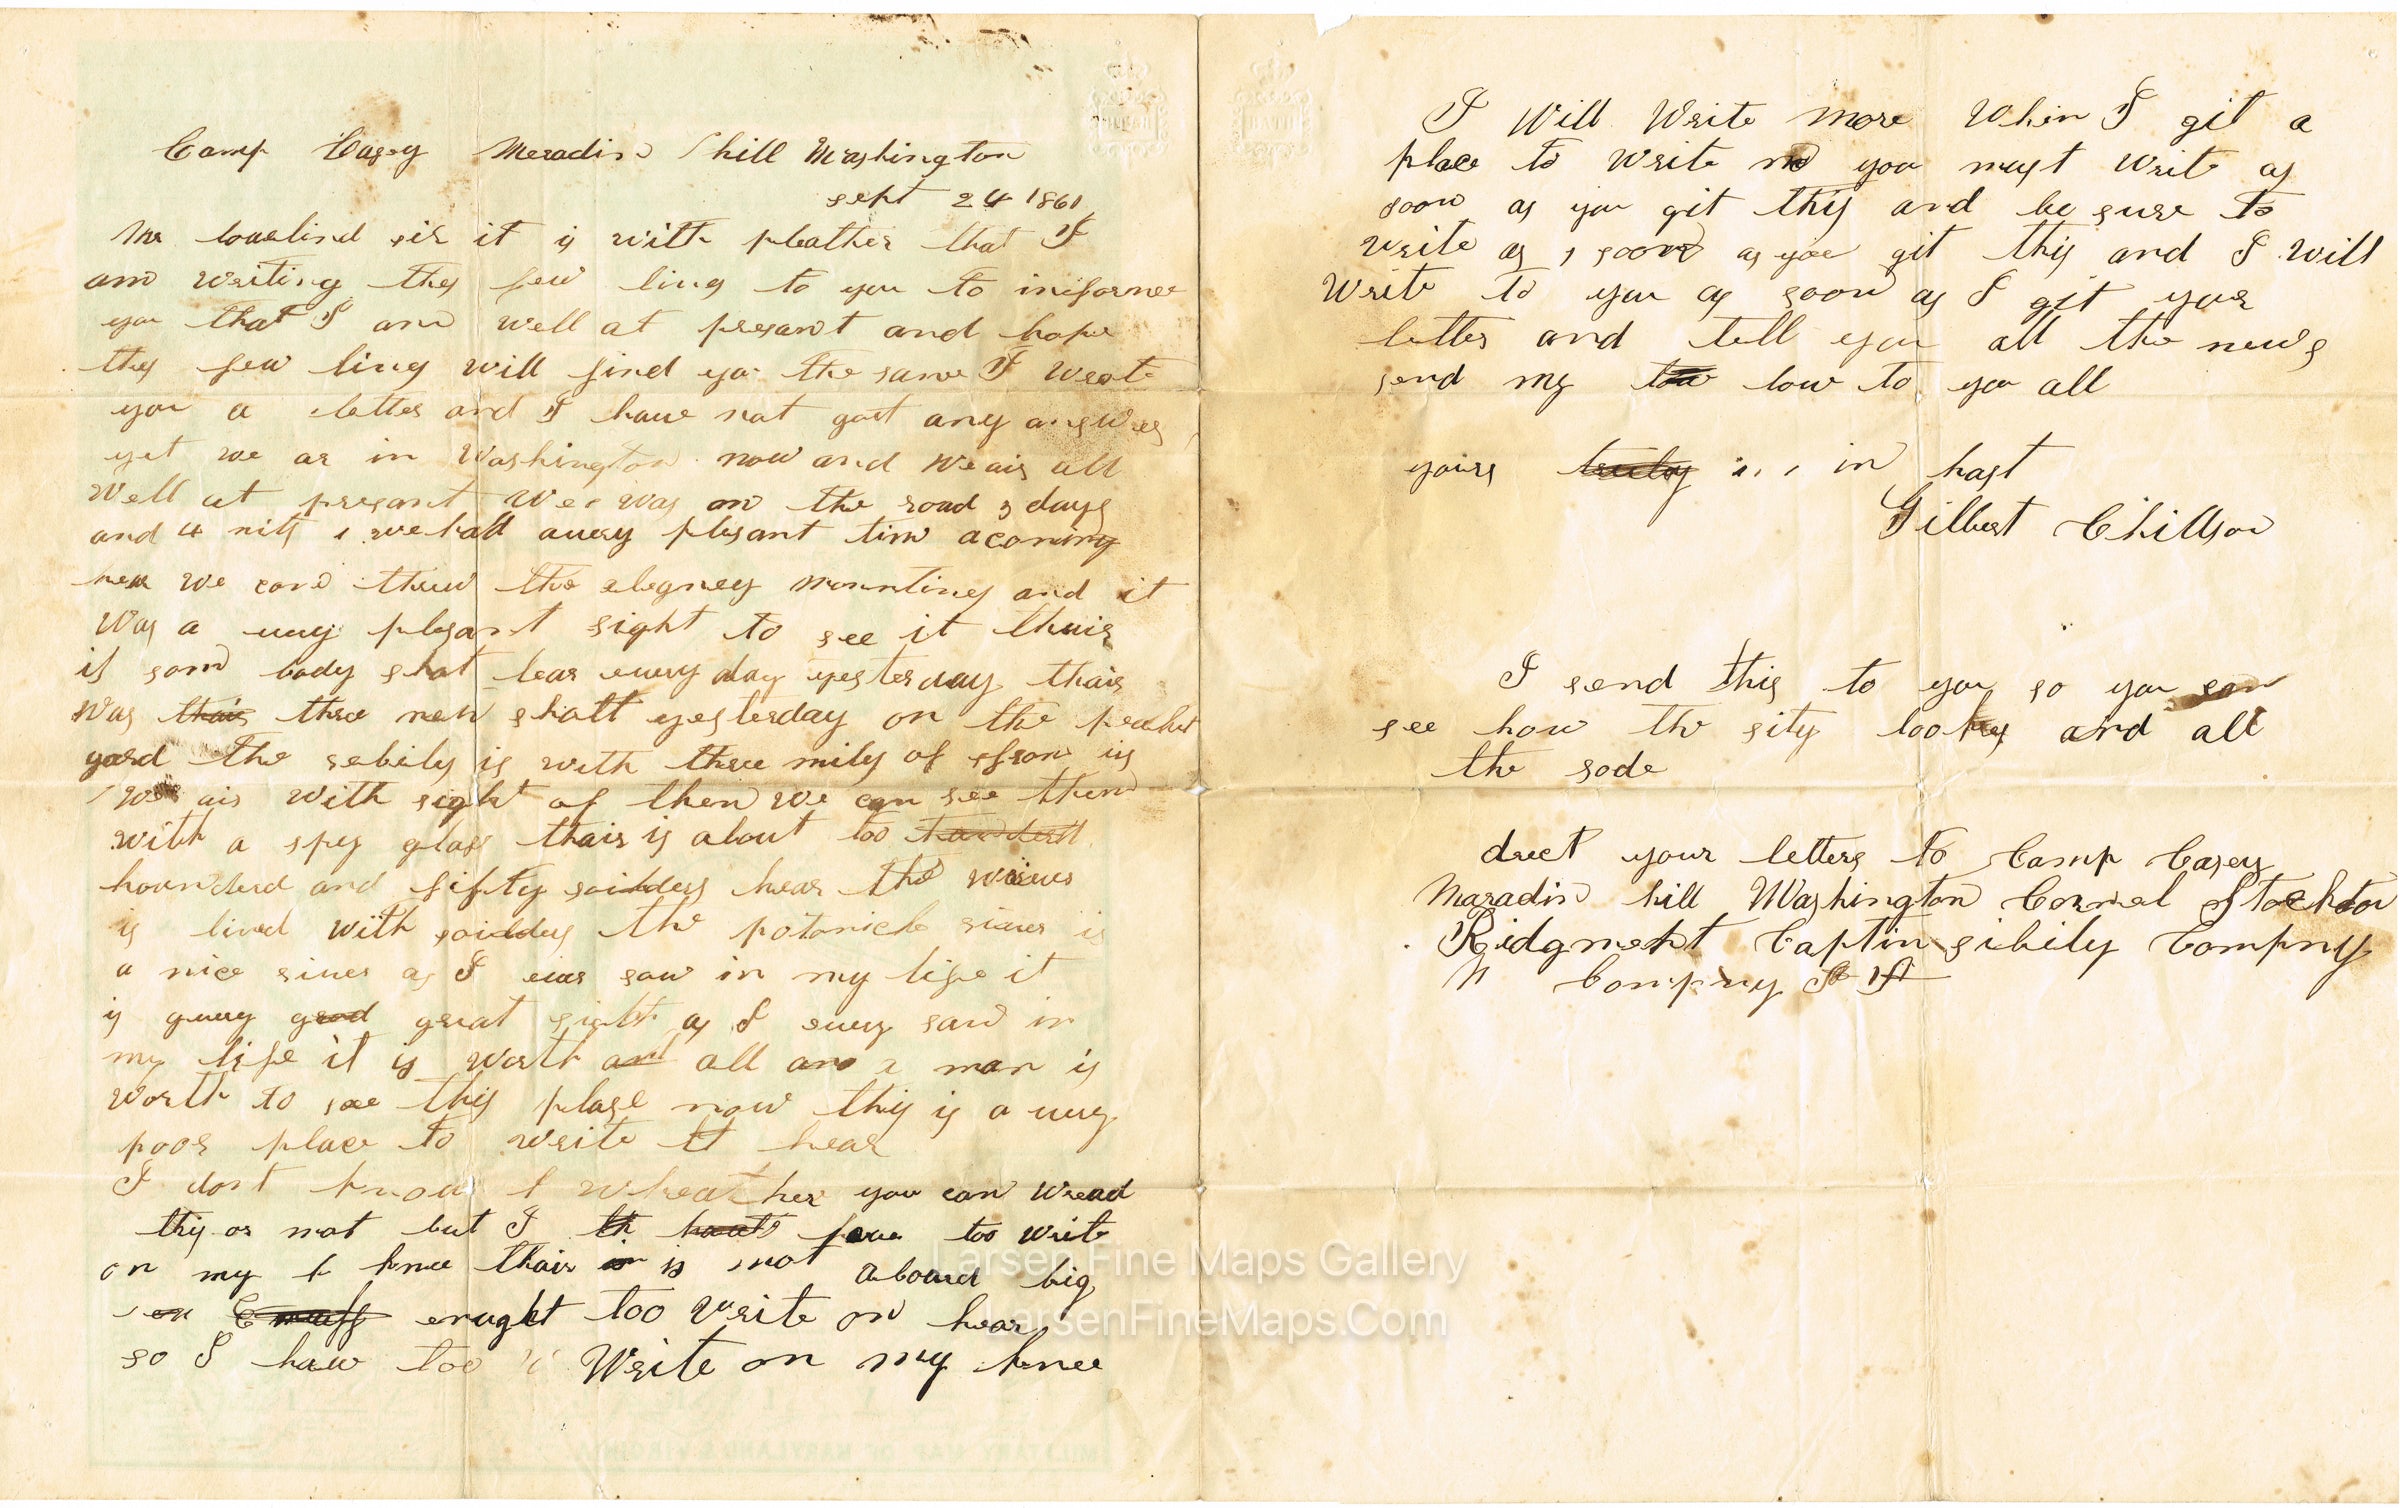 Camp Casey Meradin hill Washington
sept 24 1861
Mr louelind sir it is with pleather that I
am writing thes few lins to you to informe
you that I am well at presant and hope
thes few lins will find you the same I wrote
you a letter and I haue not gout any answer
yet we ar in Washington now and We air all
Well at presant We was on the road 3 days
and 4 nits we hall auery plesant tim acoming
hear we come threw the alegney mountins and it
Was a uery plesant sight to see it thair
is som body shot hear euery day yesterday thair
Was thair three men shott yesterday on the peacket
yard the sebily is with three mils of from us
We air With sight of them We can see them
with a spy glass thair is about too
hounderd and fifty soilders hear the wriuer
is lined With soilders the potomick riuer is
a nice riuer as I euer saw in my life it
is auery good great sight as I euery saw in
my life it is worth and all a man is
Worth to see this plase now this is a uery
poor place to write hear
I dont know whreather you can Wread
this or not but I haue too Write
on my knee thair is not aboard big
enught too Write on hear
so I haue too Write on my knee
I Will Write more When I git a
place to Write you must Write as
soon as you git this and be sure to
write as soon as you git this and I will
Write to you as soon as I git your
letter and tell you all the news
send my love to you all
yours truly in hast
Gilbert Chillson
I send this to you so you can
see how the sity lookes and all
the rode
drect your letters to Camp Casey
Maradin hill Washington Cornal Stockton
Ridgment Captin sibily Compny
Compny
Larsen Fine Maps Gallery
LarsenFineMaps.Com
MILITARY MAP OF MARYLAND & VIRGINIA